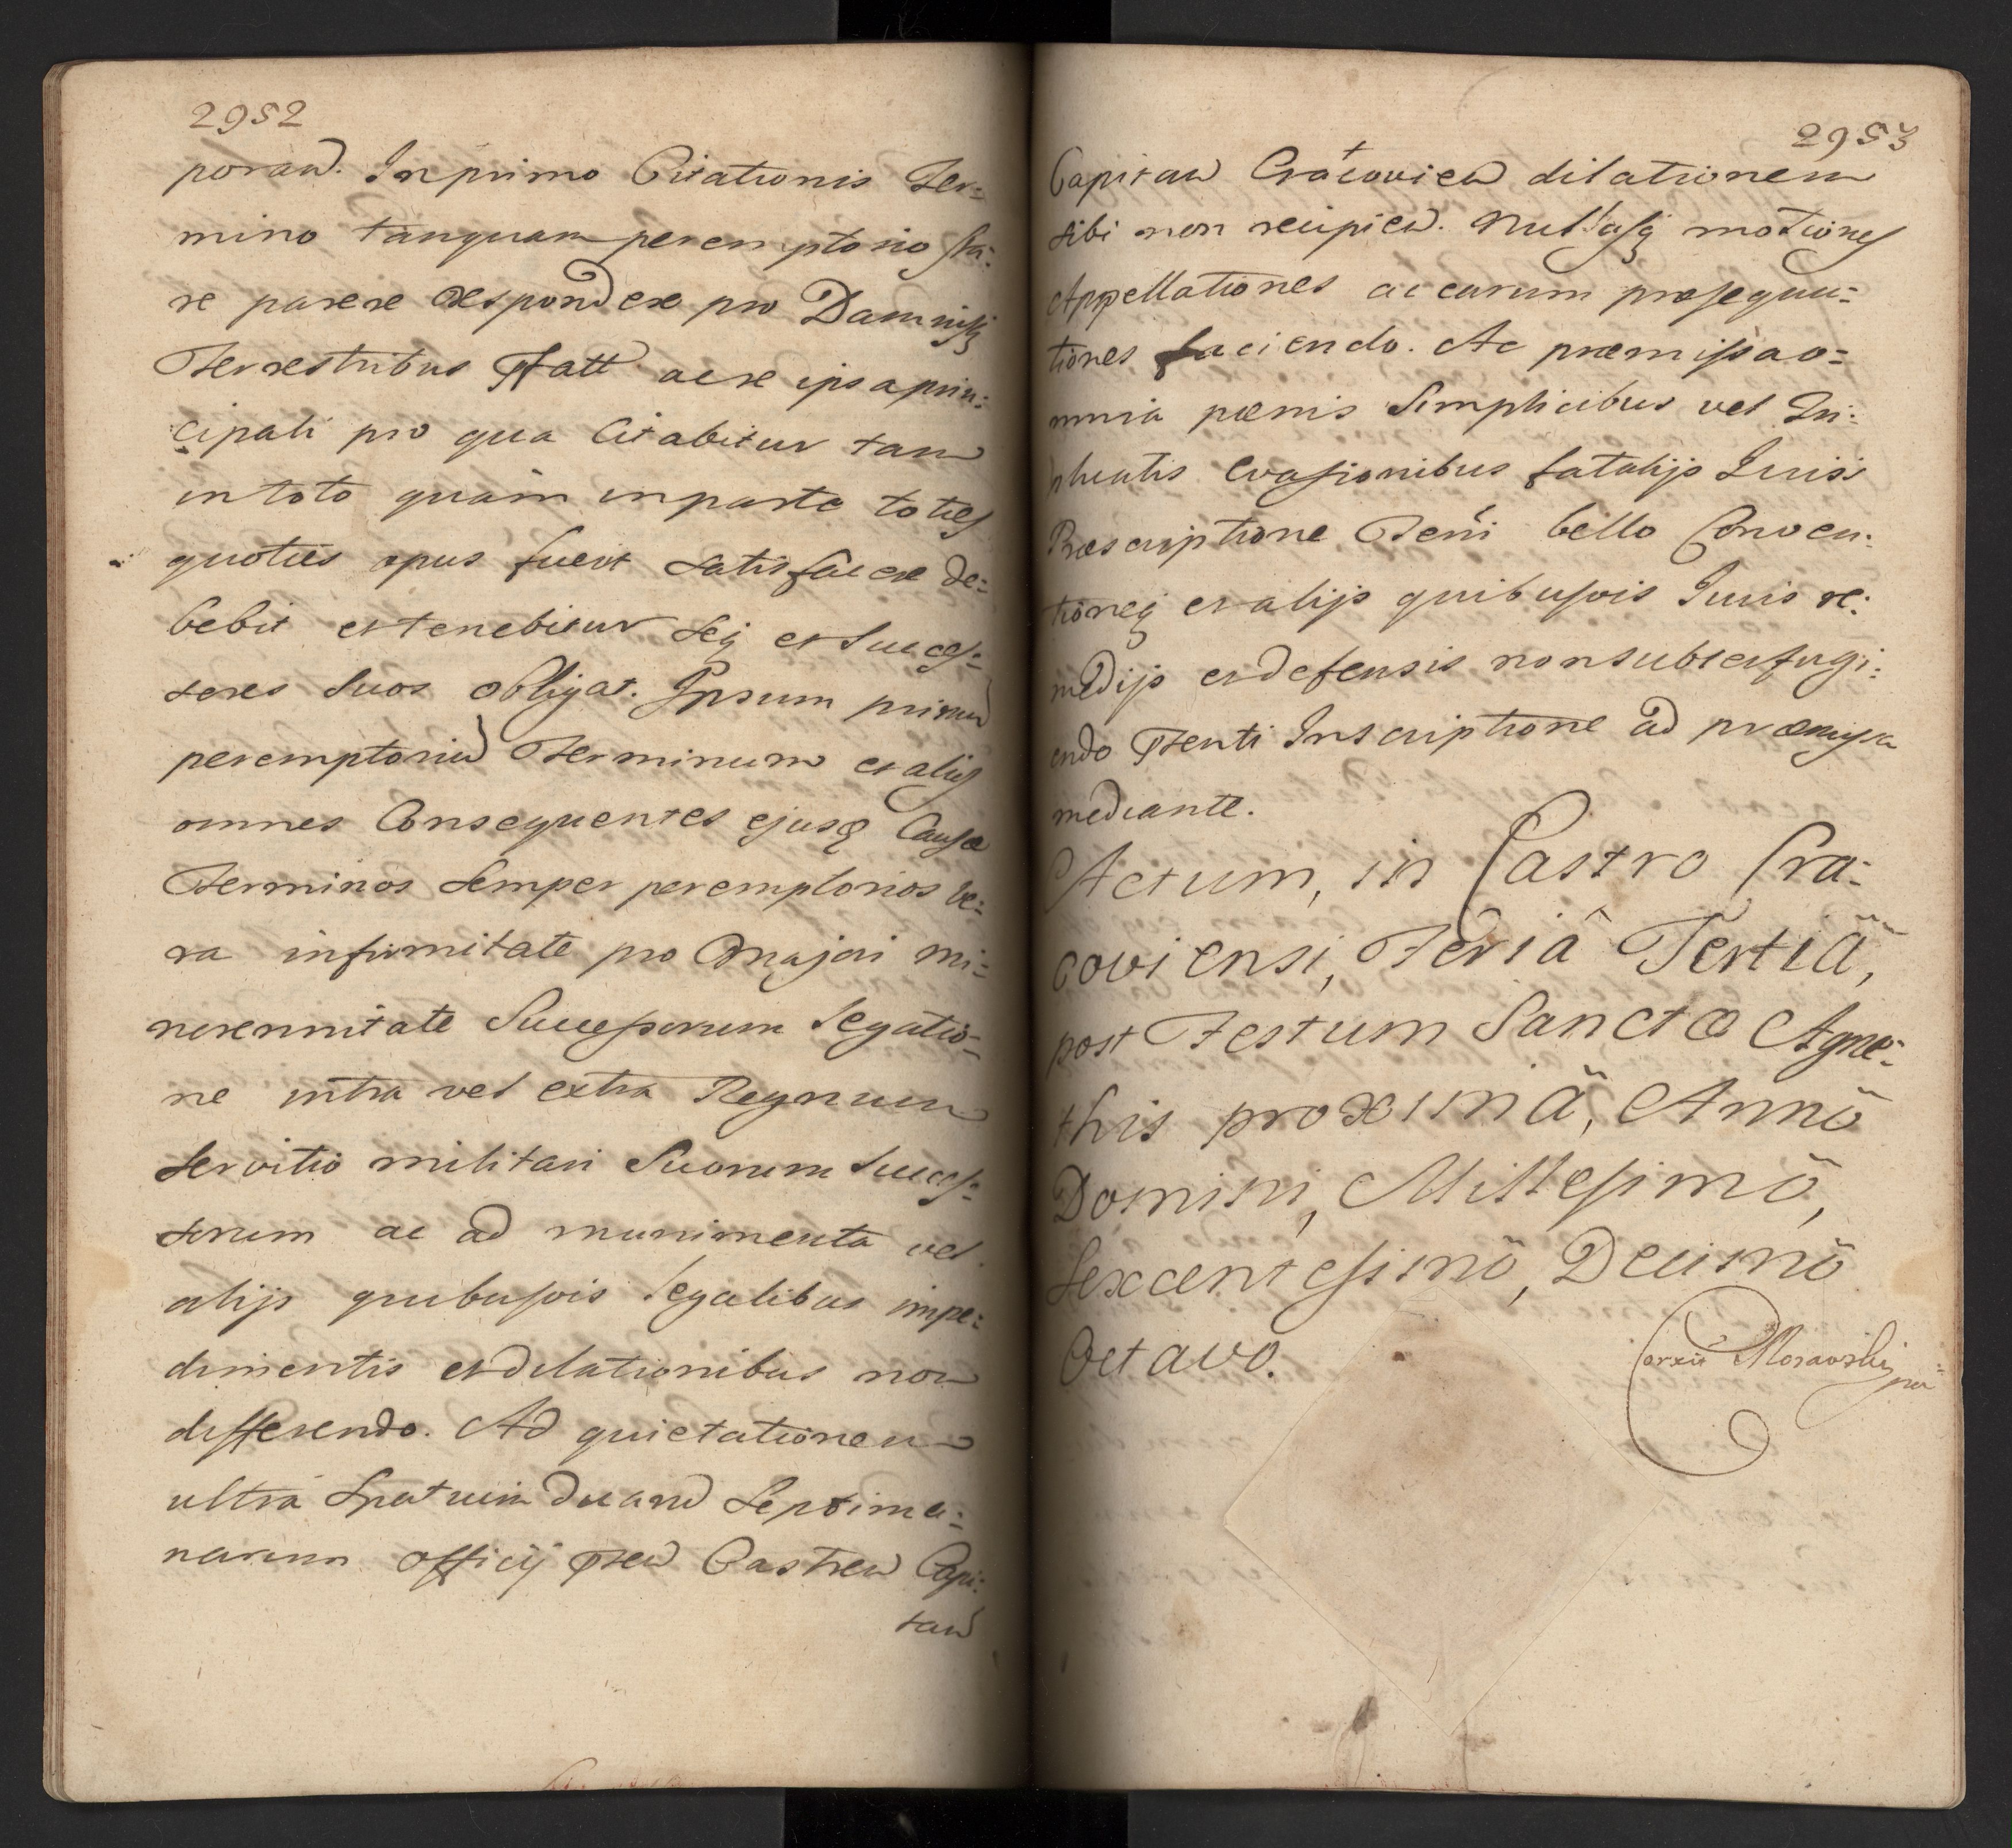 2952
poran. In primo Citationis Ter=
mino tanquam peremptorio sta=
re parere respondere pro Damnisq
Terrestribus Ptatt ac re ipsa prin=
cipali pro qua Citabitur tam
in toto quam in parte toties
quoties opus fuerit satisfacere de=
bebit et tenebitur seq et succes=
sores suos obligat. Ipsum primu
peremptoriu Terminum et alios
omnes Consequentes ejusq Causæ
Terminos semper peremptorios ve=
ra infirmitate pro majori mi=
norennitate Successorum legatio=
ne intra vel extra Regnum
servitio militari suorum succes=
sorum ac ad munimenta vel
alijs quibusvis legalibus impe=
dimentis et dilationibus non
differendo. Ad quietationem
ultra spatium duaru septima=
narum officij pten Castren Capi=
tan
2953
Capitan Cracovien dilationem
sibi non recipien. Nullasq motiones
Appellationes ac earum prosequu=
tiones faciendo. Ac præmissa o=
mnia pœnis simplicibus vel Tri=
plicatis Evasionibus fatalijs Juris
Præscriptione Terri bello Conven=
tioneq et alijs quibusvis Juris re=
medijs et defensis non subterfugi=
endo Ptenti Inscriptione ad præmissa
mediante.
Actum, in Castro Cra=
coviensi, Feriâ Tertiâ,
post Festum Sanctæ Agne=
this proximâ, Annô
Domini, Millesimô,
Sexcentesimô, Decimô
Octavo.
Morawski